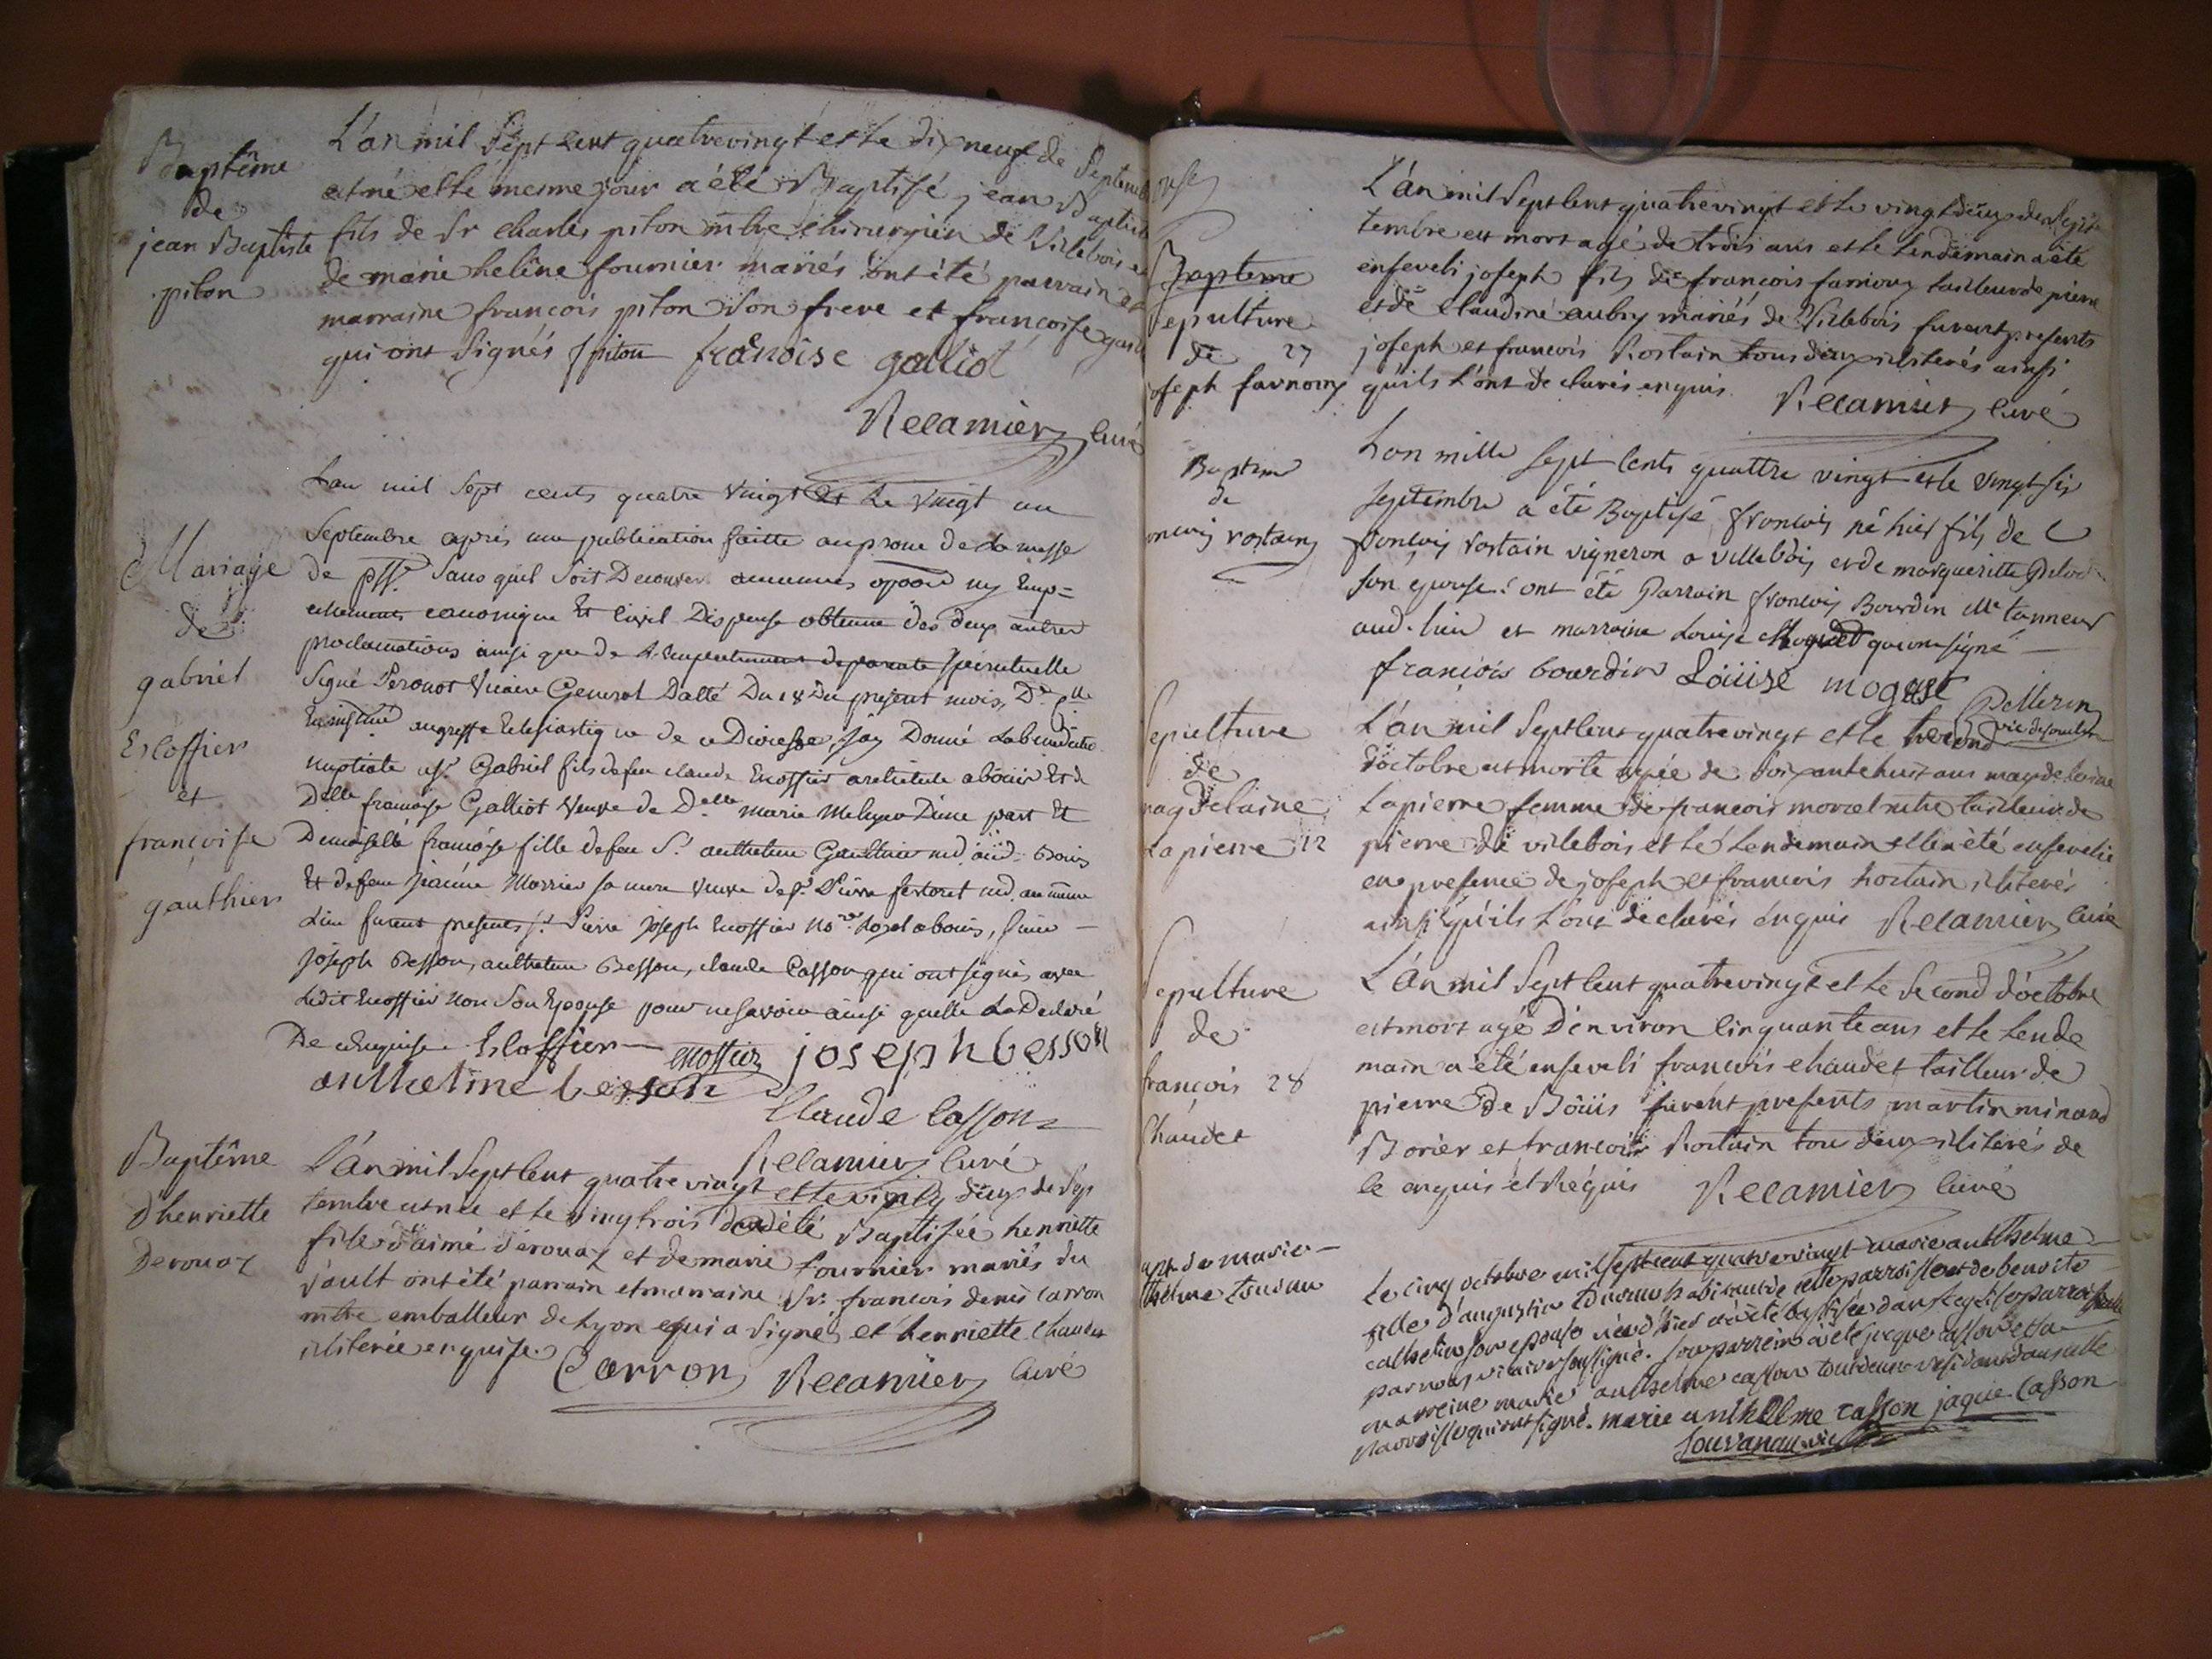 Baptême
de
jean Baptiste
piton
L'an mil Sept Cent quatrevingt et le dix neuf de Septemb
est né et le mesme jour a été Baptisé jean Baptiste
fils de Sr charles piton mtre chirurgien de Villebois et
de marie heline fournier mariés ont été parrain et
marraine françois piton son frere et françoise
qui ont Signés piton francoise galliot
Recamier Curé
Mariage
de
gabriel
Escoffier
et
françoise
gauthier
Lan mil Sept cents quatre Vingt et Le Vingt un
Septembre aprés une publication faitte au prone de La messe
de Sans quil Soit Decouver aucunnes ny Emp=
echement canonique Et Civil Dispense obtenue des deux autres
proclamations ainsi que de Spirituelle
Signé Vicaire General Datté Du 18 Du present mois,
Eclesiastique de ce Diocesse, jay Donné La benediction
nuptiale Gabriel fils de feu claude Escoffier a bouis Et de
Delle françoise Galliot Veuve de Delle marie Dune part Et
Demoiselle françoise fille de feu Sr anthelme Gaulthier md aud. Bouis
Et de feu sa mere Veuve de Sr Pierre md au meme
Lieu furent presents Sr Pierre joseph Escoffier Nore Royal a bouis,
joseph Besson, anthelme Besson, claude Casson qui ont signés avec
Ledit Escoffier non Son Epouse pour ne savoir ainsi quelle La Declaré
De ce Enquise Escoffier Escoffier joseph besson
anthelme besson
Claude Casson
Recamier Curé
Baptême
dhenriette
Derouaz
L'an mil Sept Cent quatre vingt et le vingt deux de Sep
tembre est née et le vingt trois a été Baptisée henriette
fille d'aimé derouaz et de marie fournier mariés du
Sault ont été parrain et marraine Sr. francois denis Carron
mtre emballeur de Lyon qui a Signé et henriette Chaudet
illiterée enquise Carron Recamier Curé
Baptême
Sepulture
de 27
joseph farnoux
L'an mil Sept Cent quatrevingt et le vingt deux de Sep
tembre est mort agé de trois ans et le Lendemain a été
enseveli joseph fils de francois farnoux tailleur de pierre
et de Claudine aubry mariés de Villebois furent presents
joseph et francois Rostain tous deux illiterés ainsi
qu'ils l'ont declarés enquis. Recamier Curé
Baptem
de
rostaing
Lan mille Sept Cents quattre vingt et le vingt six
Septembre a été Baptisé françois né hier fils de
françois rostain vigneron a Villebois et de margueritte
son epouse. ont été Parrain françois Bourdin Me tanneur
aud. lieu et marraine Louise Moguet qui ont signé
françois bourdin Loüise moguet Pellerin
Sepulture
de
magdelaine
Lapierre 12
L'an mil Sept Cent quatrevingt et le second
d'octobre est morte agée de Soixante huit ans magdelaine
Lapierre femme de francois morel mtre tailleur de
pierre de villebois et le Lendemain elle a été ensevelie
en presence de joseph et francois Rostain illiterés
ainsi qu'ils l'ont declarés enquis Recamier Curé
Sepulture
de
françois 28
Chaudet
L'an mil Sept Cent quatrevingt et le Second d'octobre
est mort agé d'environ Cinquante ans et le Lende
main a été enseveli francois chaudet tailleur de
pierre de Boüis furent presents martin minand
Borier et francois Rostain tous deux illiterés de
ce enquis et Requis Recamier Curé
bapt. de marie
Le cinq octobre mil sept cent quatrevingt marie anthelme
fille d'augustin habitant de cette parroisse et de benoite
son epouse née d'hier a été baptisée dans l'eglise parroissiale
par nous vicaire soussigné. son parrein a été jacque casson et sa
marreine marie anthelme casson tous deux residant dans cette
parroisse qui ont signé. marie anthelme casson jaque Casson